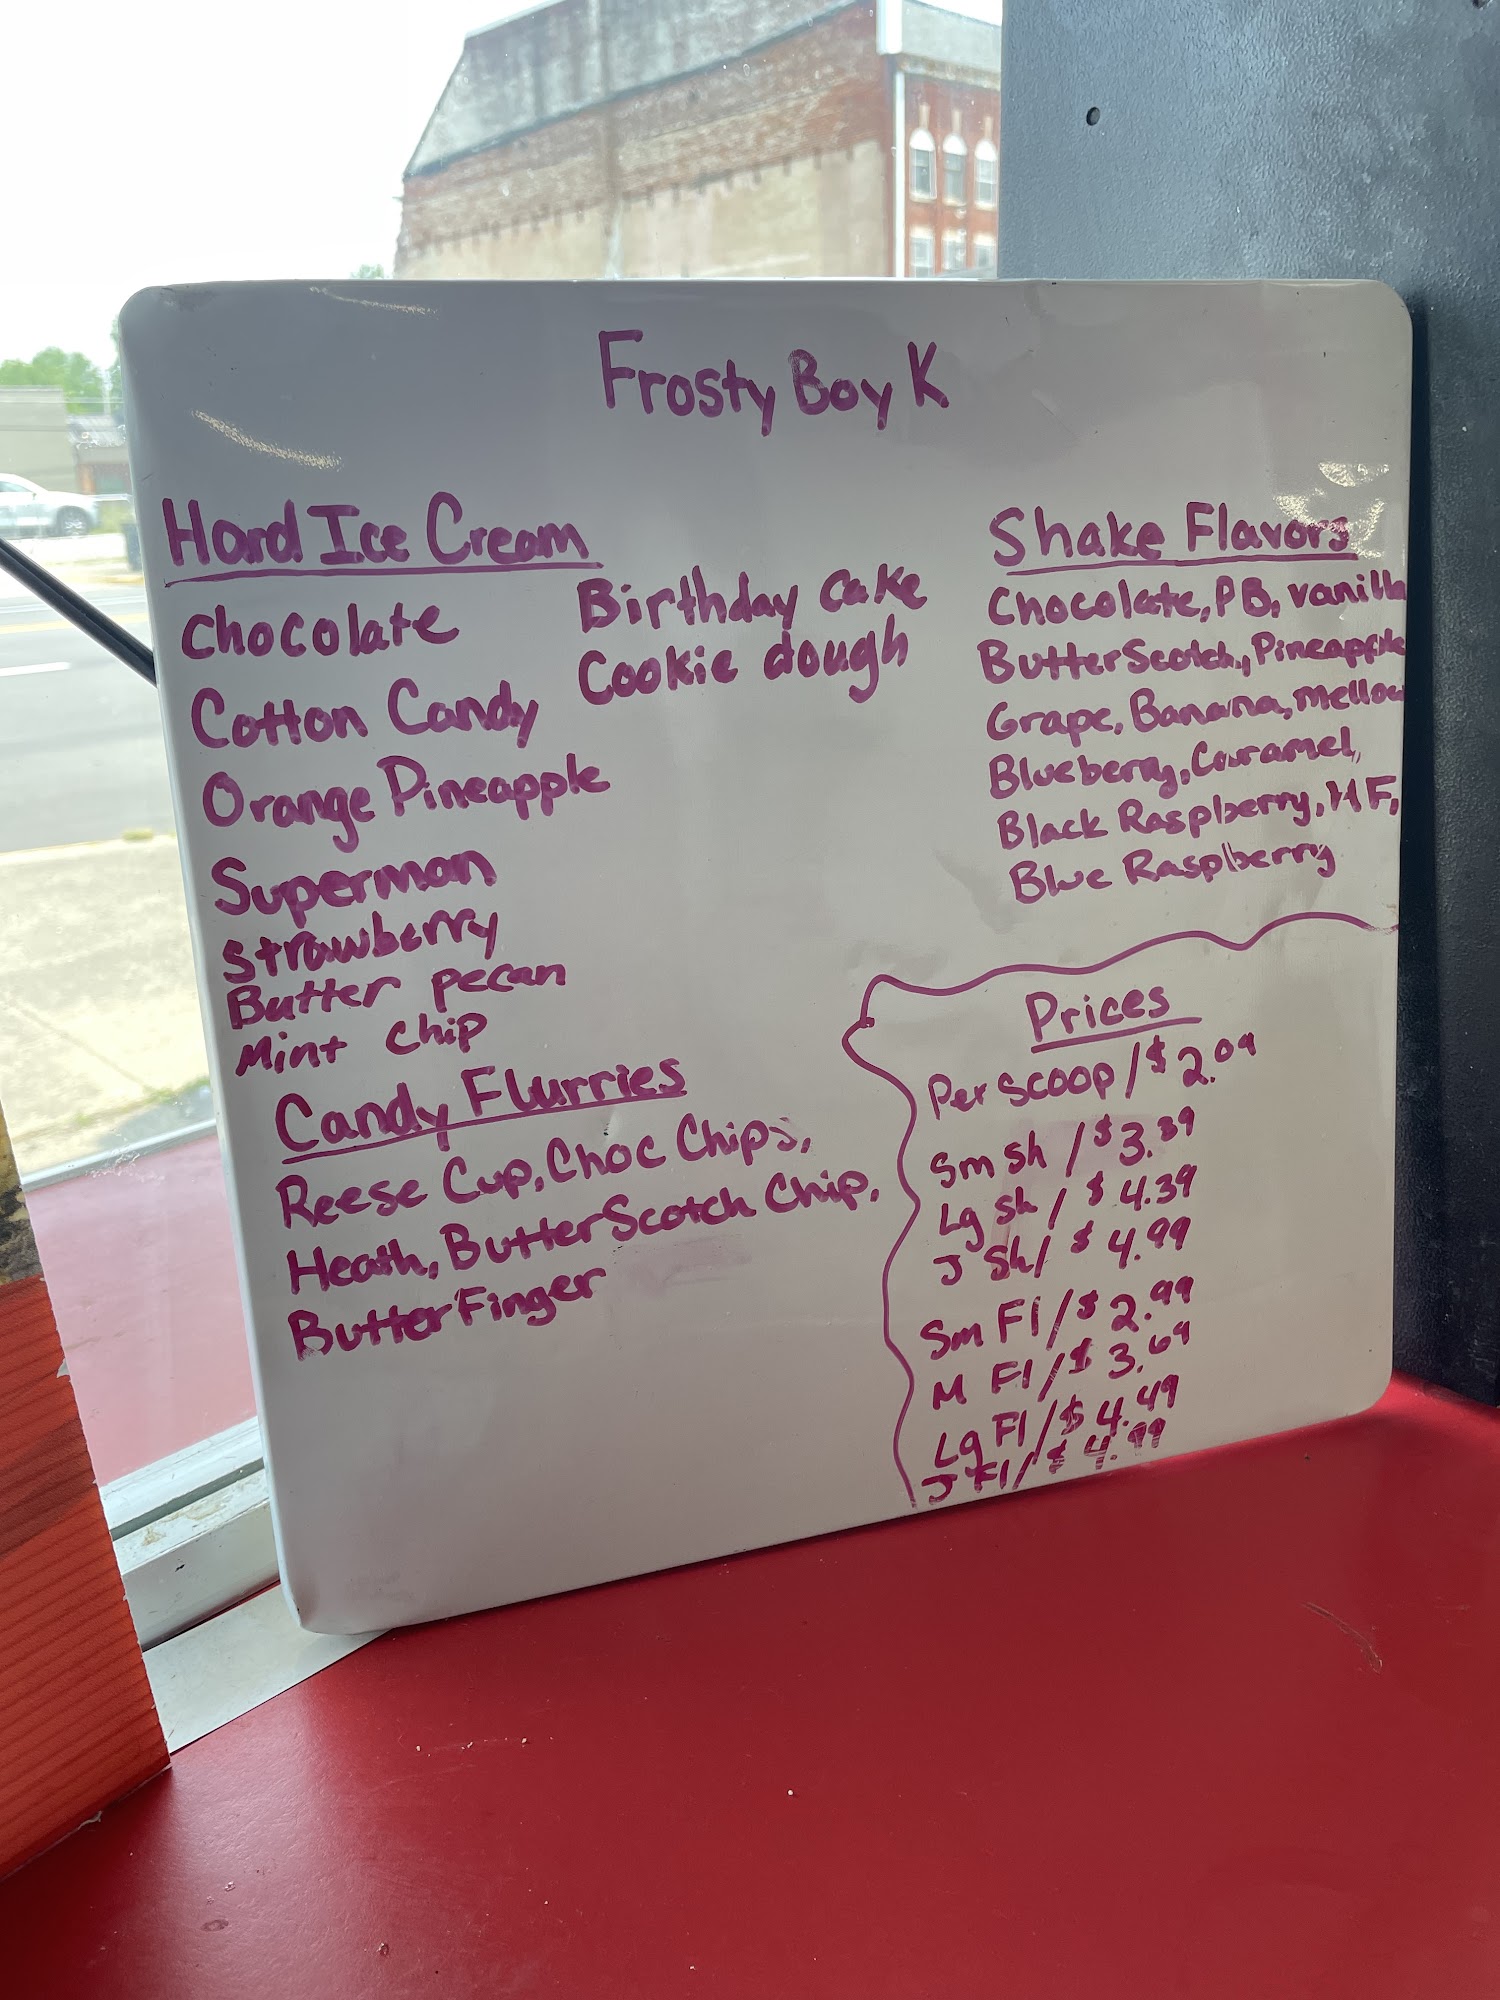 Frosty Boy K
Hard Ice Cream
Chocolate
Cotton Candy
Orange Pineapple
Superman
Strawberry
Butter pecan
Mint chip
Birthday cake
Cookie dough
Candy Flurries
Reese Cup, Choc Chips,
Heath, ButterScotch Chip,
ButterFinger
Shake Flavors
Chocolate, PB, vanilla
ButterScotch, Pineapple
Grape, Banana, mellow
Blueberry, Caramel,
Black Raspberry, HF,
Blue Raspberry
Prices
Per Scoop / $2.09
Sm sh / $3.39
Lg sh / $4.39
J Sh / $4.99
Sm Fl / $2.99
M Fl / $3.69
Lg Fl / $4.49
J Fl / $4.99